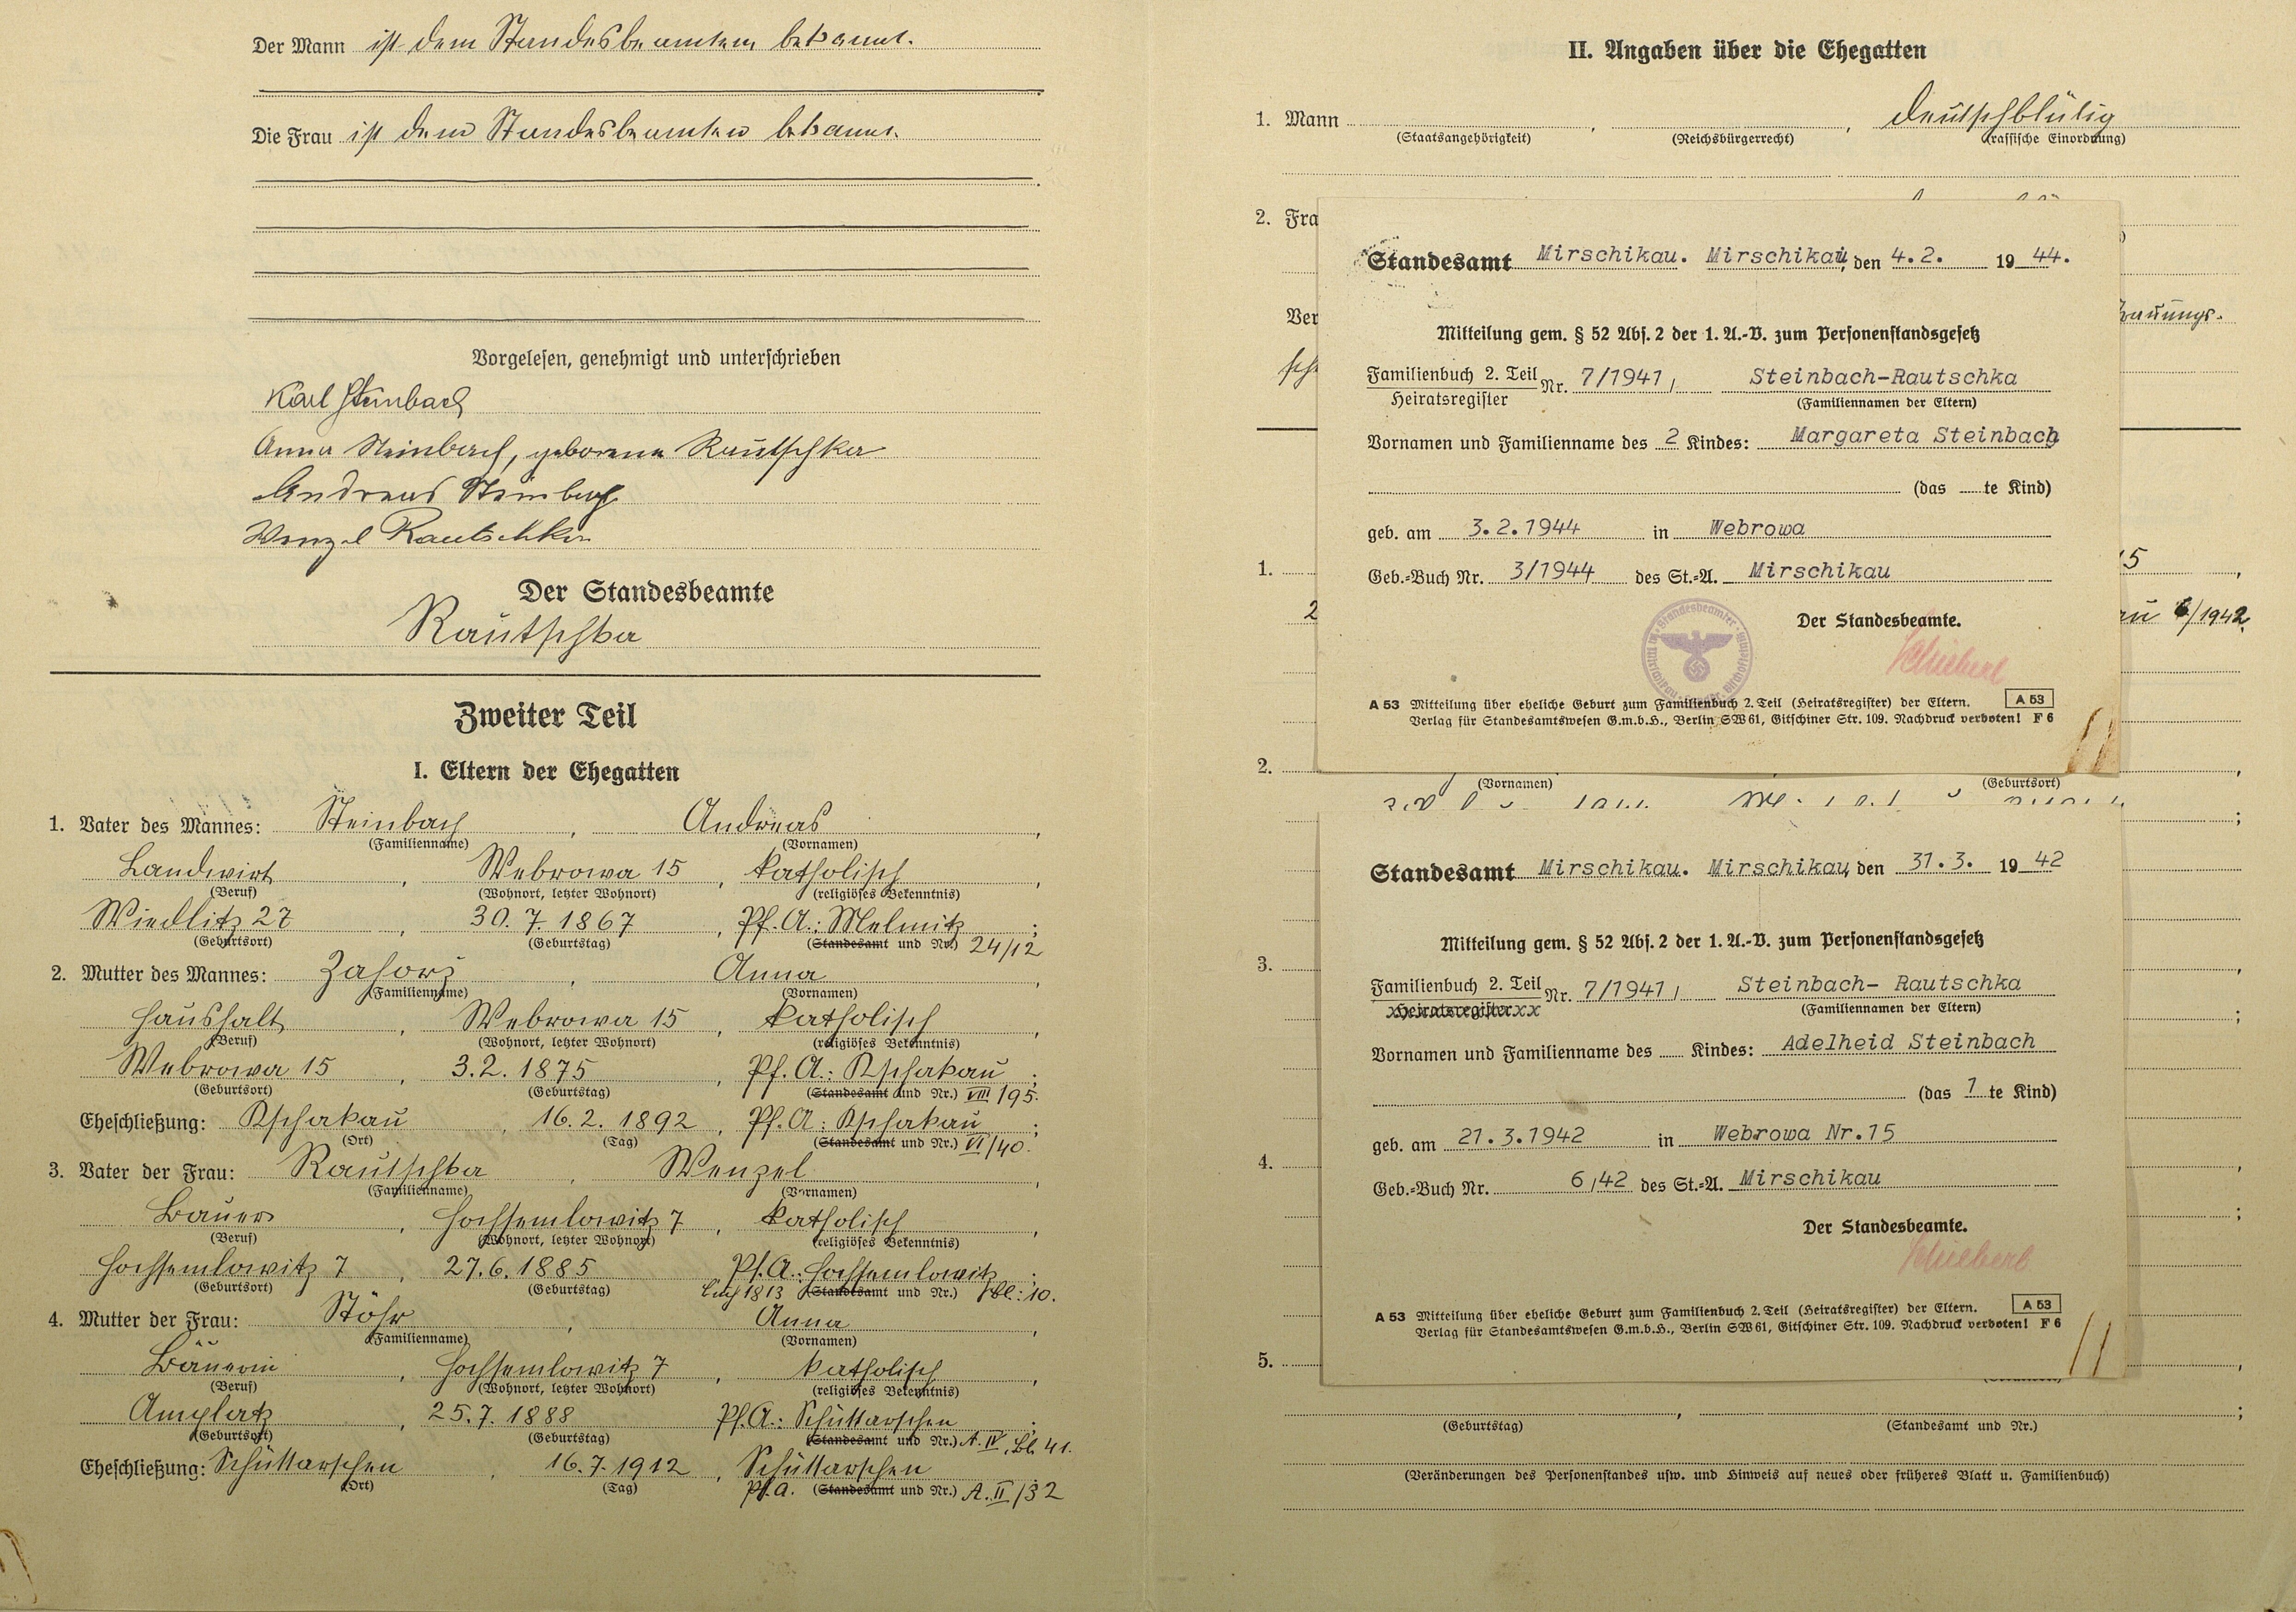 Der Mann ist dem Standesbeamten bekannt.
Die Frau ist dem Standesbeamten bekannt.
Vorgelesen, genehmigt und unterschrieben
Karl Steinbach
Anna Steinbach, geborene Rautschka
Andreas Steinbach
Wenzel Rautschka
Der Standesbeamte
Rautschka
Zweiter Teil
I. Eltern der Ehegatten
1. Vater des Mannes: Steinbach, Andreas,
(Familienname) (Vornamen)
Landwirt, Webrowa 15, katholisch,
(Beruf) (Wohnort, letzter Wohnort) (religiöses Bekenntnis)
Wiedlitz 27, 30.7.1867, Pf.A.: Melmitz;
(Geburtsort) (Geburtstag) (Standesamt und Nr.) 24/12
2. Mutter des Mannes: Zahorz, Anna,
(Familienname) (Vornamen)
Haushalt, Webrowa 15, katholisch,
(Beruf) (Wohnort, letzter Wohnort) (religiöses Bekenntnis)
Webrowa 15, 3.2.1875, Pf.A.: Kschakau;
(Geburtsort) (Geburtstag) (Standesamt und Nr.) VIII/195.
Eheschließung: Kschakau, 16.2.1892, Pf.A: Kschakau;
(Ort) (Tag) (Standesamt und Nr.) VI/40.
3. Vater der Frau: Rautschka, Wenzel,
(Familienname) (Vornamen)
Bauer, Hochsemlowitz 7, katholisch,
(Beruf) (Wohnort, letzter Wohnort) (religiöses Bekenntnis)
Hochsemlowitz 7, 27.6.1885 Pf.A.: Hochsemlowitz;
(Geburtsort) (Geburtstag) 1813 (Standesamt und Nr.) Bl: 10.
4. Mutter der Frau: Stöhr, Anna,
(Familienname) (Vornamen)
Bäuerin, Hochsemlowitz 7, katholisch,
(Beruf) (Wohnort, letzter Wohnort) (religiöses Bekenntnis)
Amplatz, 25.7.1888 Pf.A.: Schüttarschen;
(Geburtsort) (Geburtstag) (Standesamt und Nr.) A. IV, Bl. 41.
Eheschließung: Schüttarschen, 16.7.1912, Schüttarschen
(Ort) (Tag) Pf.A. (Standesamt und Nr.) A. II/32
II. Angaben über die Ehegatten
1. Mann , , deutschblütig
(Staatsangehörigkeit) (Reichsbürgerrecht) (rassische Einordnung)
2. Fra
Ver
Standesamt Mirschikau. Mirschikau, den 4.2. 1944.
Mitteilung gem. § 52 Abs. 2 der 1. A.-V. zum Personenstandsgesetz
Familienbuch 2. Teil
Heiratsregister Nr. 7/1941, Steinbach-Rautschka
(Familiennamen der Eltern)
Vornamen und Familienname des 2 Kindes: Margareta Steinbach
(das te Kind)
geb. am 3.2.1944 in Webrowa
1. 15,
Geb.-Buch Nr. 3/1944 des St.-A. Mirschikau
2 6/1942.
Der Standesbeamte.
Schieberl
A 53 Mitteilung über eheliche Geburt zum Familienbuch 2. Teil (Heiratsregister) der Eltern. A 53
Verlag für Standesamtswesen G.m.b.H., Berlin SW 61, Gitschiner Str. 109. Nachdruck verboten! F 6
2.
(Vornamen) (Geburtsort)
Standesamt Mirschikau. Mirschikau, den 31.3. 1942
Mitteilung gem. § 52 Abs. 2 der 1. A.-V. zum Personenstandsgesetz
3.
Familienbuch 2. Teil
Heiratsregister Nr. 7/1941, Steinbach- Rautschka
(Familiennamen der Eltern)
Vornamen und Familienname des Kindes: Adelheid Steinbach
(das 1 te Kind)
geb. am 21.3.1942 in Webrowa Nr.15
4.
Geb.-Buch Nr. 6,42 des St.-A. Mirschikau
Der Standesbeamte.
Schieberl
A 53 Mitteilung über eheliche Geburt zum Familienbuch 2. Teil (Heiratsregister) der Eltern. A 53
Verlag für Standesamtswesen G.m.b.H., Berlin SW 61, Gitschiner Str. 109. Nachdruck verboten! F 6
5.
(Geburtstag) (Standesamt und Nr.)
(Veränderungen des Personenstandes usw. und Hinweis auf neues oder früheres Blatt u. Familienbuch)